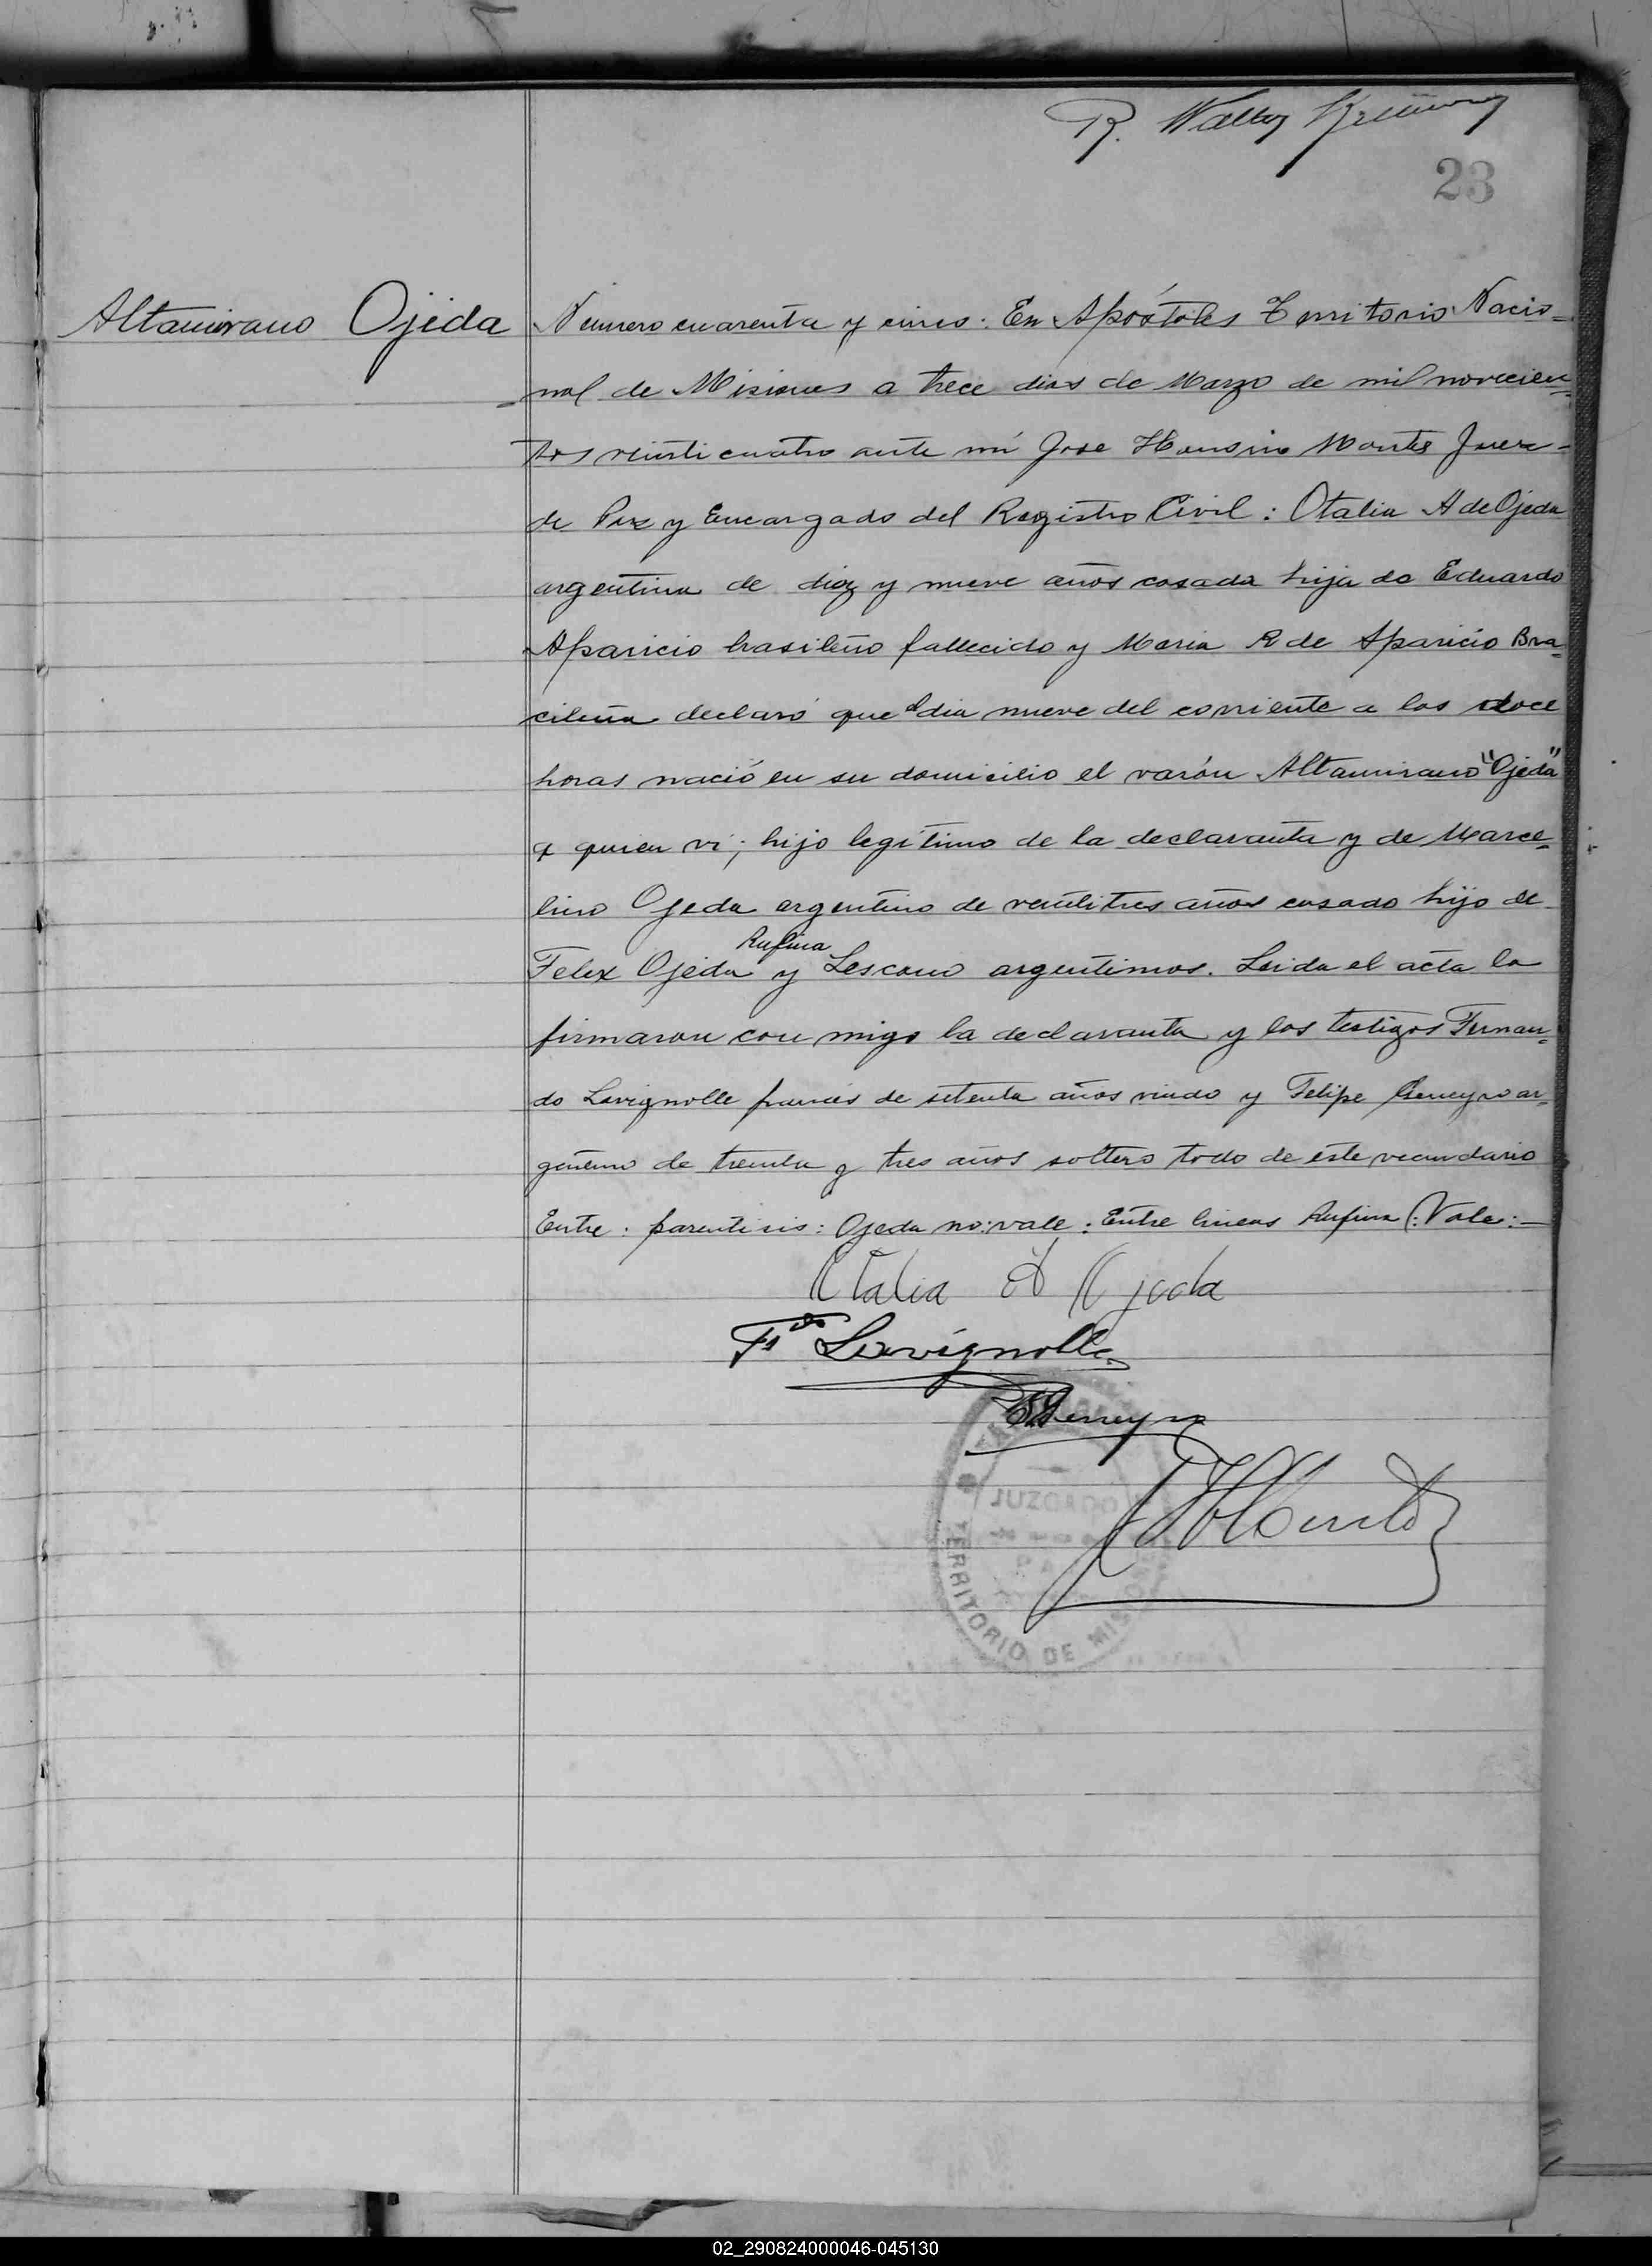 R.
23
Altamirano Ojeda
Numero cuarenta y cinco: En Apóstoles Territorio Nacio=
nal de Misiones a trece dias de Marzo de mil novecien=
tos veinti cuatro ante mi Jose Montes Juez
de Paz y Encargado del Registro Civil: Otalia A de Ojeda
argentina de diez y nueve años casada hija de Eduardo
Aparicio brasileño fallecido y Maria R de Aparicio Bra=
cileña declaró que el dia nueve del corriente a las doce
horas nació en su domicilio el varón Altamirano "Ojeda"
a quien vi; hijo legítimo de la declaranta y de Marce=
lino Ojeda argentino de veintitres años casado hijo de
Felex Ojeda y Rufina Lescano argentinos. Leida el acta la
firmaron con migo la declaranta y los testigos Fernan=
do Lavignolle francés de setenta años viudo y Felipe ar=
gentino de treinta y tres años soltero todo de este vecindario
Entre: parentisis: Ojeda no:vale: Entre lineas Rufina (:Vale:—
Otalia A Ojeda
Fdo Lavignolle
JUZGADO
TERRITORIO DE MISIONES
02_290824000046-045130